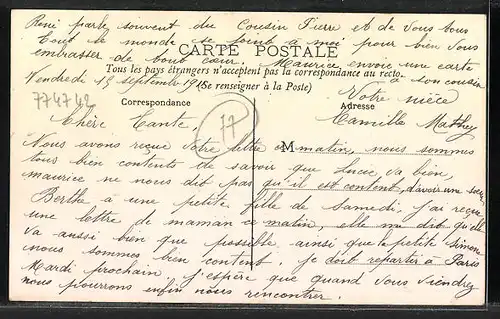 René parle souvent du Cousin Pierre et de vous tous
Tout le monde se joint à moi pour bien vous
embrasser de tout cœur. Maurice envoie une carte
à son cousin
CARTE POSTALE
Tous les pays étrangers n'acceptent pas la correspondance au recto.
(Se renseigner à la Poste)
Vendredi 15 septembre
Votre nièce
Camille Mathey
774742
Correspondance
Adresse
77
M
Chère Tante,
Nous avons reçue votre lettre ce matin, nous sommes
tous bien contents de savoir que Luce va bien,
maurice ne nous dit pas qu'il est content d'avoir une sœur,
Berthe à une petite fille de Samedi, j'ai reçue
une lettre de maman ce matin, elle me dit qu'elle
va aussi bien que possible, ainsi que la petite Simone
nous sommes bien content je dois repartir à Paris
Mardi prochain j'espère que quand vous viendrez
nous pourrons enfin nous rencontrer.